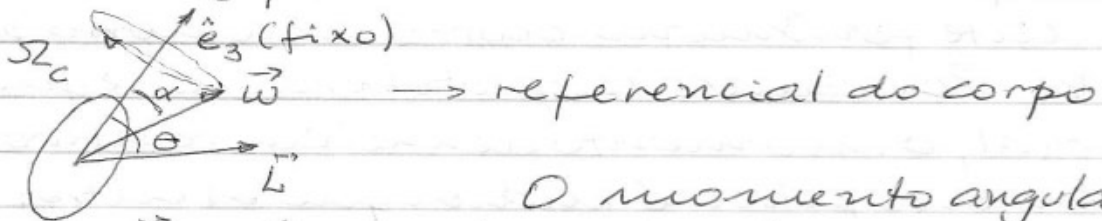 ê₃ (fixo)
Ω_c
α
ω⃗ → referencial do corpo
θ
L⃗
O momento angula